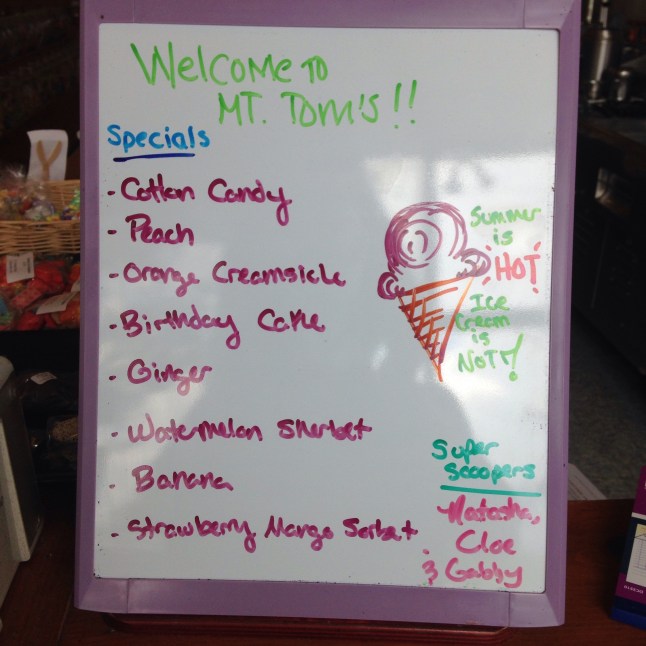 Welcome to
Mt. Tom's!!
Specials
- Cotton Candy
- Peach
- Orange Creamsicle
- Birthday Cake
- Ginger
- Watermelon Sherbet
- Banana
- Strawberry Mango Sorbet
Summer
is
HOT
Ice
Cream
is
NOT!
Super
Scoopers
Natasha,
Cloe
& Gabby